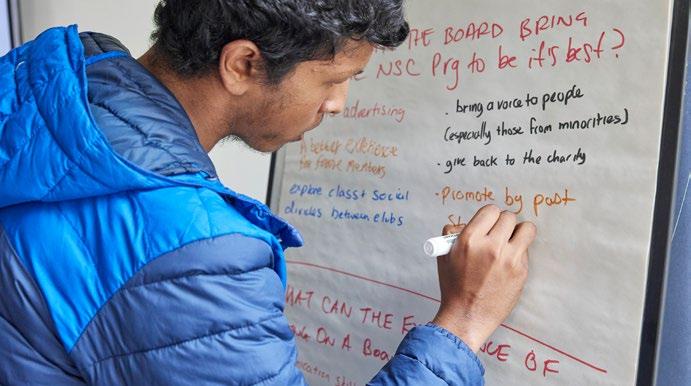 THE BOARD BRING
NSC Prg to be it's best?
advertising
A better
for members
explore class + social
divides between clubs
· bring a voice to people
(especially those from minorities)
· give back to the charity
· promote by past
WHAT CAN THE
OF
ON A BOA